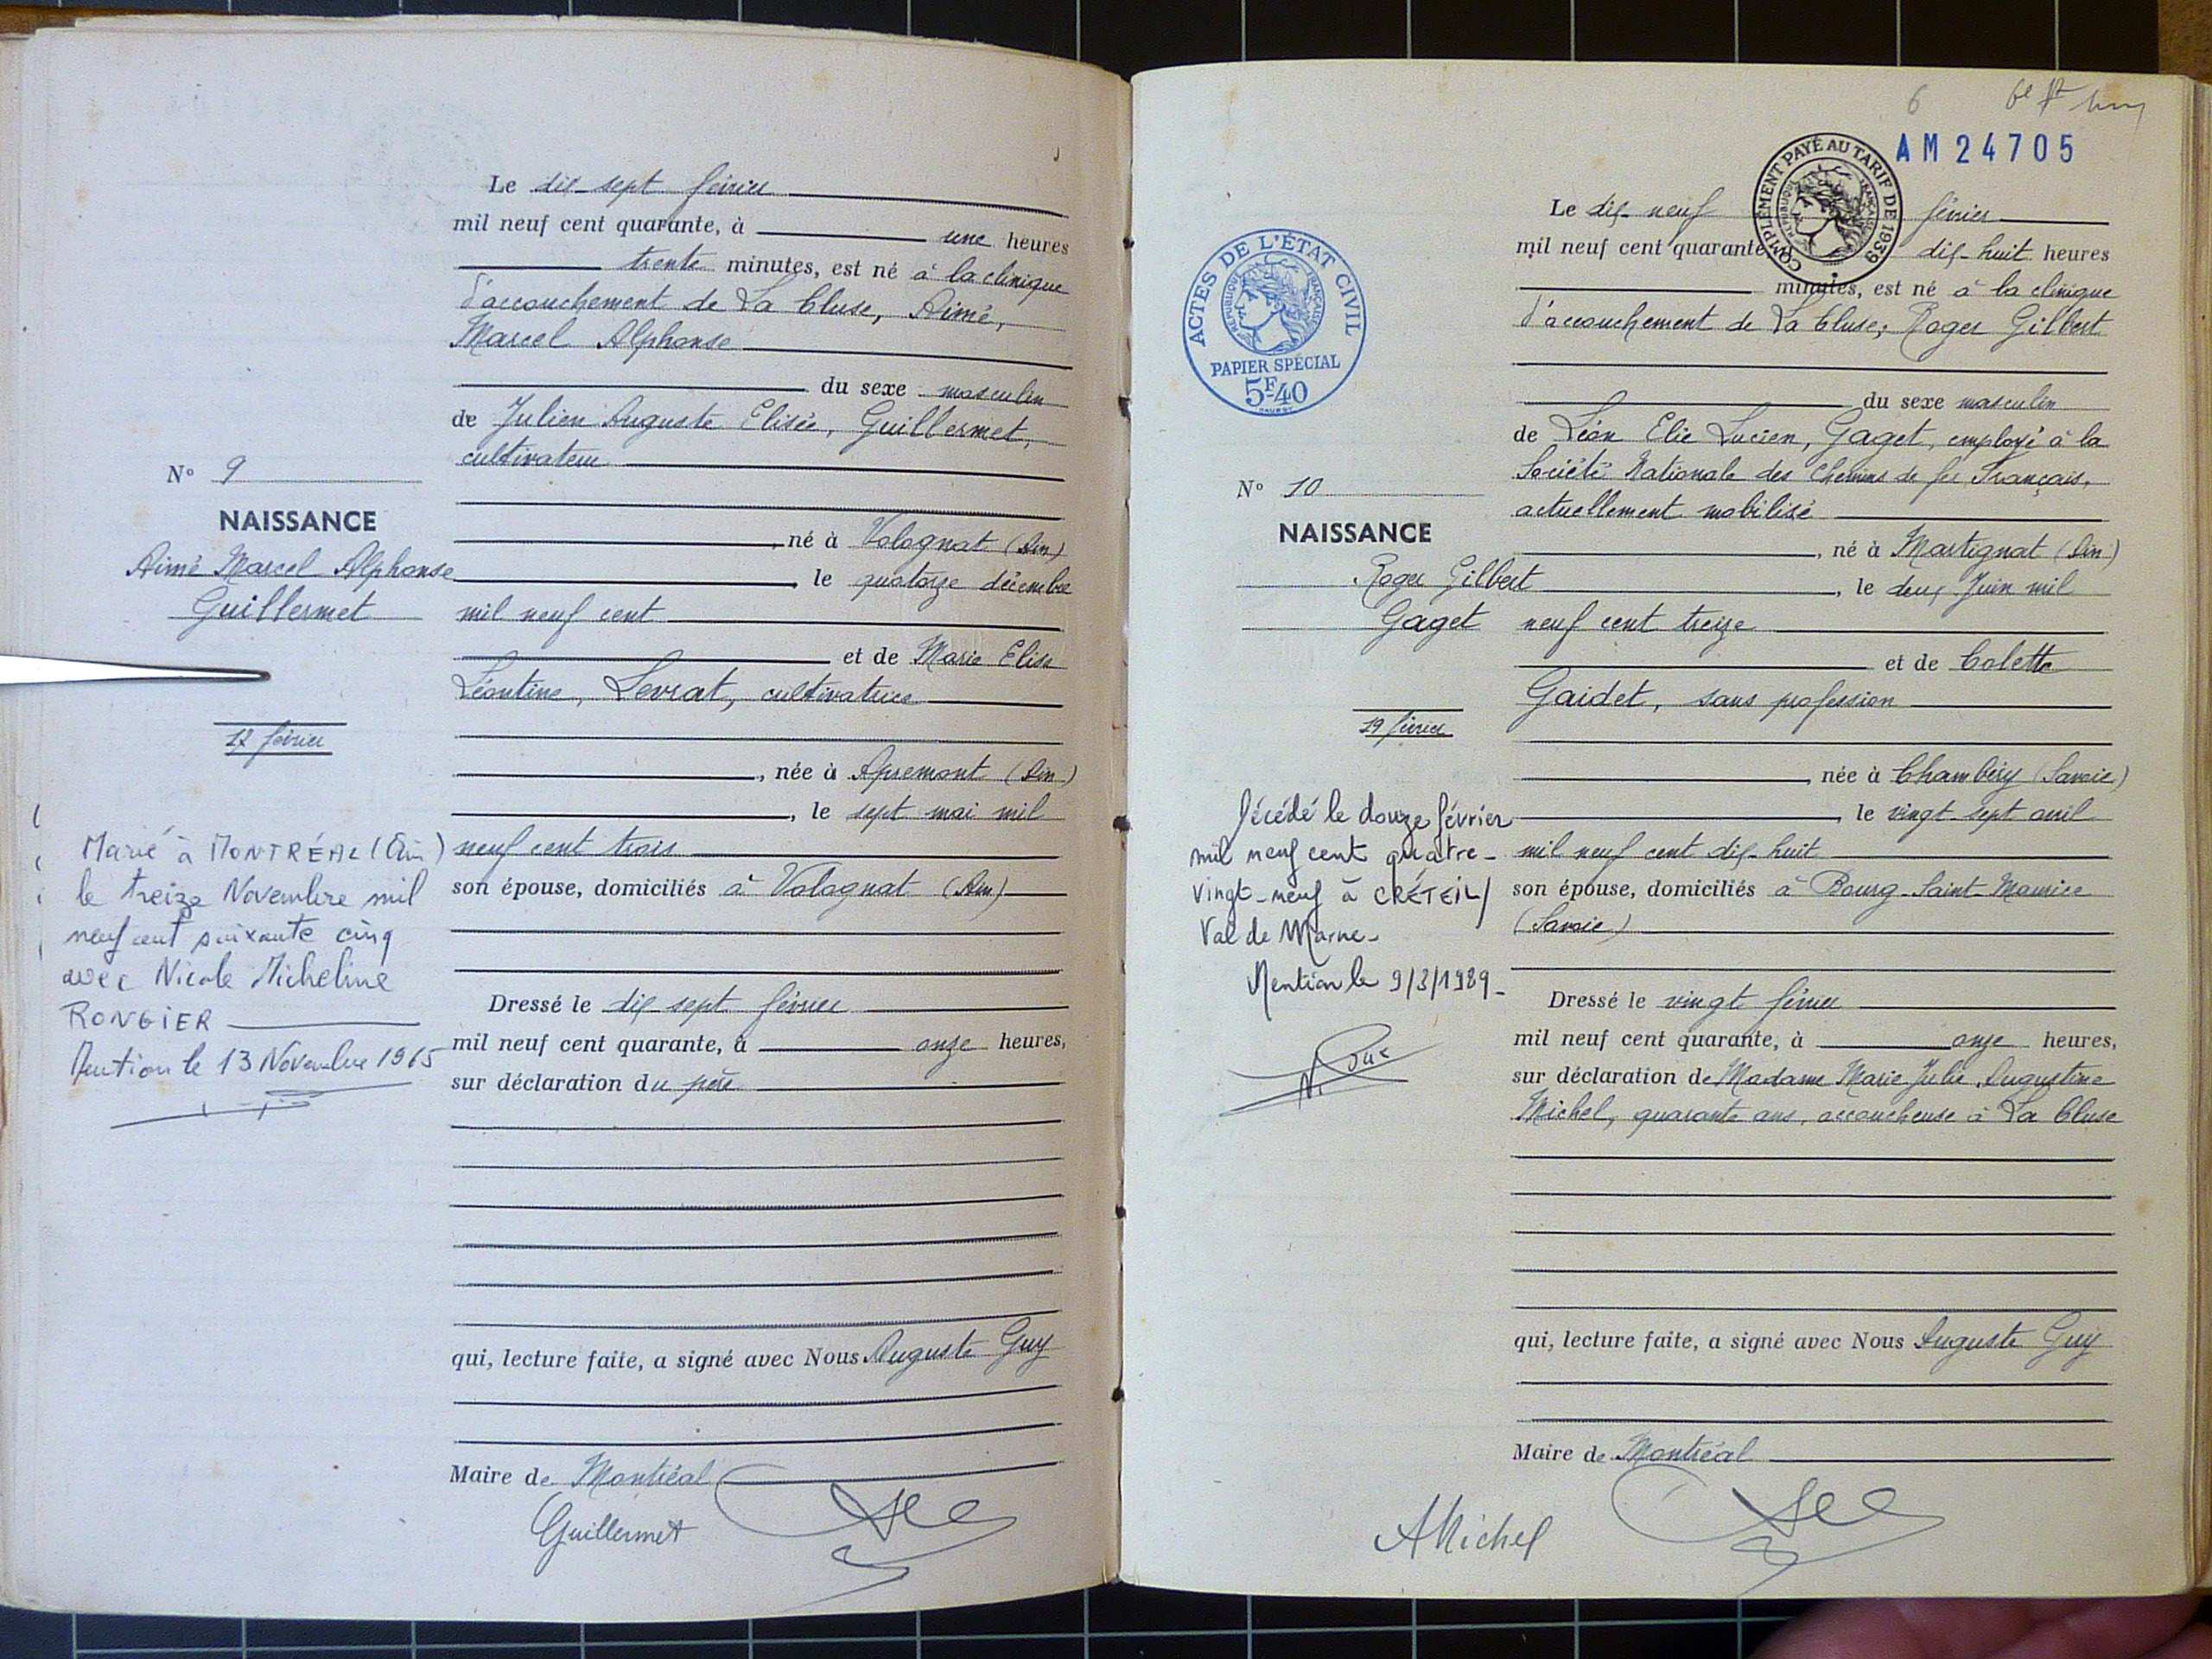 Le dix-sept février
mil neuf cent quarante, à une heures
trente minutes, est né à la clinique
d'accouchement de La Cluse, Aimé,
Marcel Alphonse
du sexe masculin
de Julien Auguste Elisée, Guillermet,
cultivateur
N° 9
NAISSANCE
Aimé Marcel Alphonse
Guillermet
17 février
né à Volognat (Ain)
le quatorze décembre
mil neuf cent
et de Marie Elisa
Léontine, Levrat, cultivatrice
, née à Apremont (Ain)
, le sept mai mil
neuf cent trois
son épouse, domiciliés à Volognat (Ain)
Marié à MONTRÉAL (Ain)
le treize Novembre mil
neuf cent soixante cinq
avec Nicole Micheline
RONGIER
Mention le 13 Novembre 1965
Dressé le dix-sept février
mil neuf cent quarante, à onze heures,
sur déclaration du père
qui, lecture faite, a signé avec Nous Auguste Guy
Maire de Montréal
Guillermet
6
AM24705
COMPLÉMENT PAYÉ AU TARIF DE 1939
RÉPUBLIQUE FRANÇAISE
ACTES DE L'ÉTAT CIVIL
RÉPUBLIQUE FRANÇAISE
PAPIER SPÉCIAL
5F40
Le dix-neuf février
mil neuf cent quarante, à dix-huit heures
minutes, est né à la clinique
d'accouchement de La Cluse, Roger Gilbert
du sexe masculin
de Léon Elie Lucien, Gaget, employé à la
Société Nationale des Chemins de fer Français,
actuellement mobilisé
N° 10
NAISSANCE
Roger Gilbert
Gaget
19 février
, né à Martignat (Ain)
, le deux Juin mil
neuf cent treize
et de Colette
Gaidet, sans profession
, née à Chambéry (Savoie)
, le vingt-sept avril
mil neuf cent dix-huit
son épouse, domiciliés à Bourg-Saint-Maurice
(Savoie)
Décédé le douze février
mil neuf cent quatre-
vingt-neuf à CRÉTEIL/
Val de Marne-
Mention le 9/3/1989-
Dressé le vingt février
mil neuf cent quarante, à onze heures,
sur déclaration de Madame Marie Julie Augustine
Michel, quarante ans, accoucheuse à La Cluse
qui, lecture faite, a signé avec Nous Auguste Guy
Maire de Montréal
AMichel